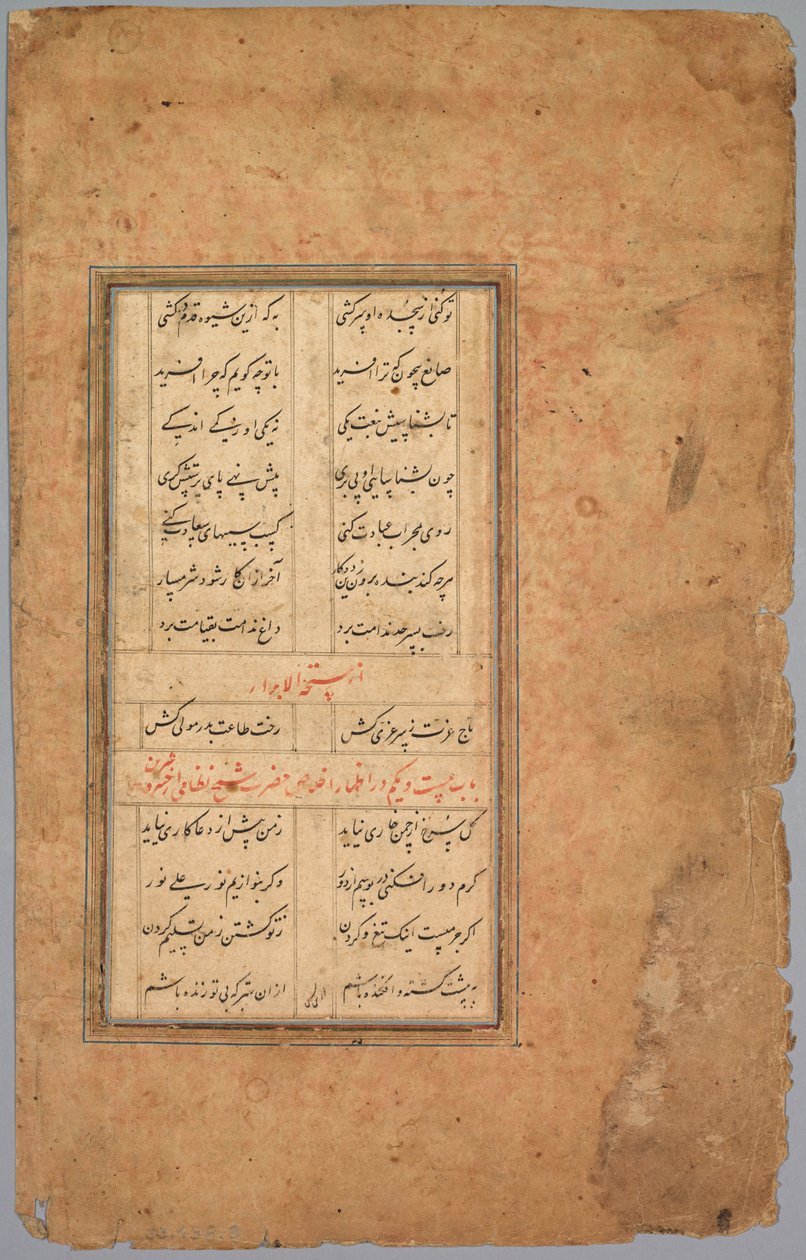 تو کنی از سجده او سر کشی به که ازین شیوه قدم در کشی
صانع بیچون که ترا آفرید با تو چه گویم که چرا آفرید
تا بشناسیش بنعت یکی نه یکی او را یکی اندکی
چون بشناسایی او پی بری پیش نهی پای پرستش گری
روی بمحراب عبادت کنی کسب سببهای سعادت کنی
هرچه کند بنده برون زین دو کار آخر از آن کار شود شرمسار
رخت بسر حد ندامت برد داغ ندامت بقیامت برد
از سبحة الابرار
تاج عزت ز سر عزی کش رخت طاعت بدر مولی کش
باب بیست و یکم در اظهار اخلاص حضرت شیخ نظامی از خسرو شیرین
گل سرخ از چمن خاری نیاید ز من بیش از دعا کاری نیاید
گرم دور افکنی در بوسم از دور وگر بنوازیم نور علی نور
اگر جرمیست اینک تیغ و گردن ز تو کشتن ز من تسلیم کردن
به پیشت کشته و افکنده باشم از آن بهتر که بی تو زنده باشم